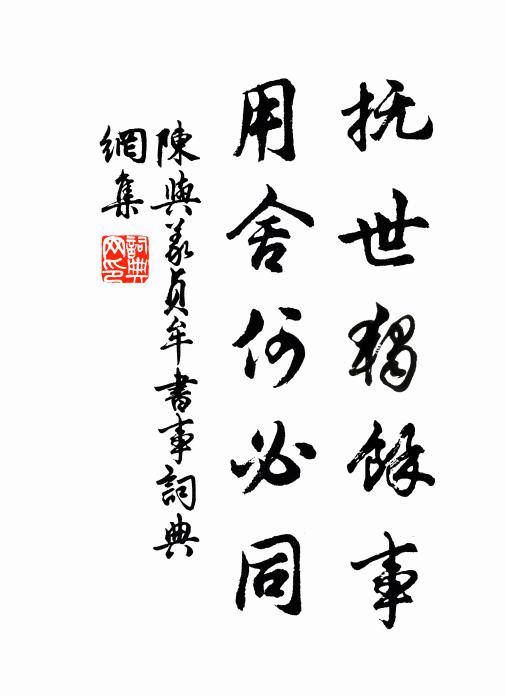 抚世獨餘事
用舍何必同
陳與義貞牟書事詞典
網集
詞典
网印